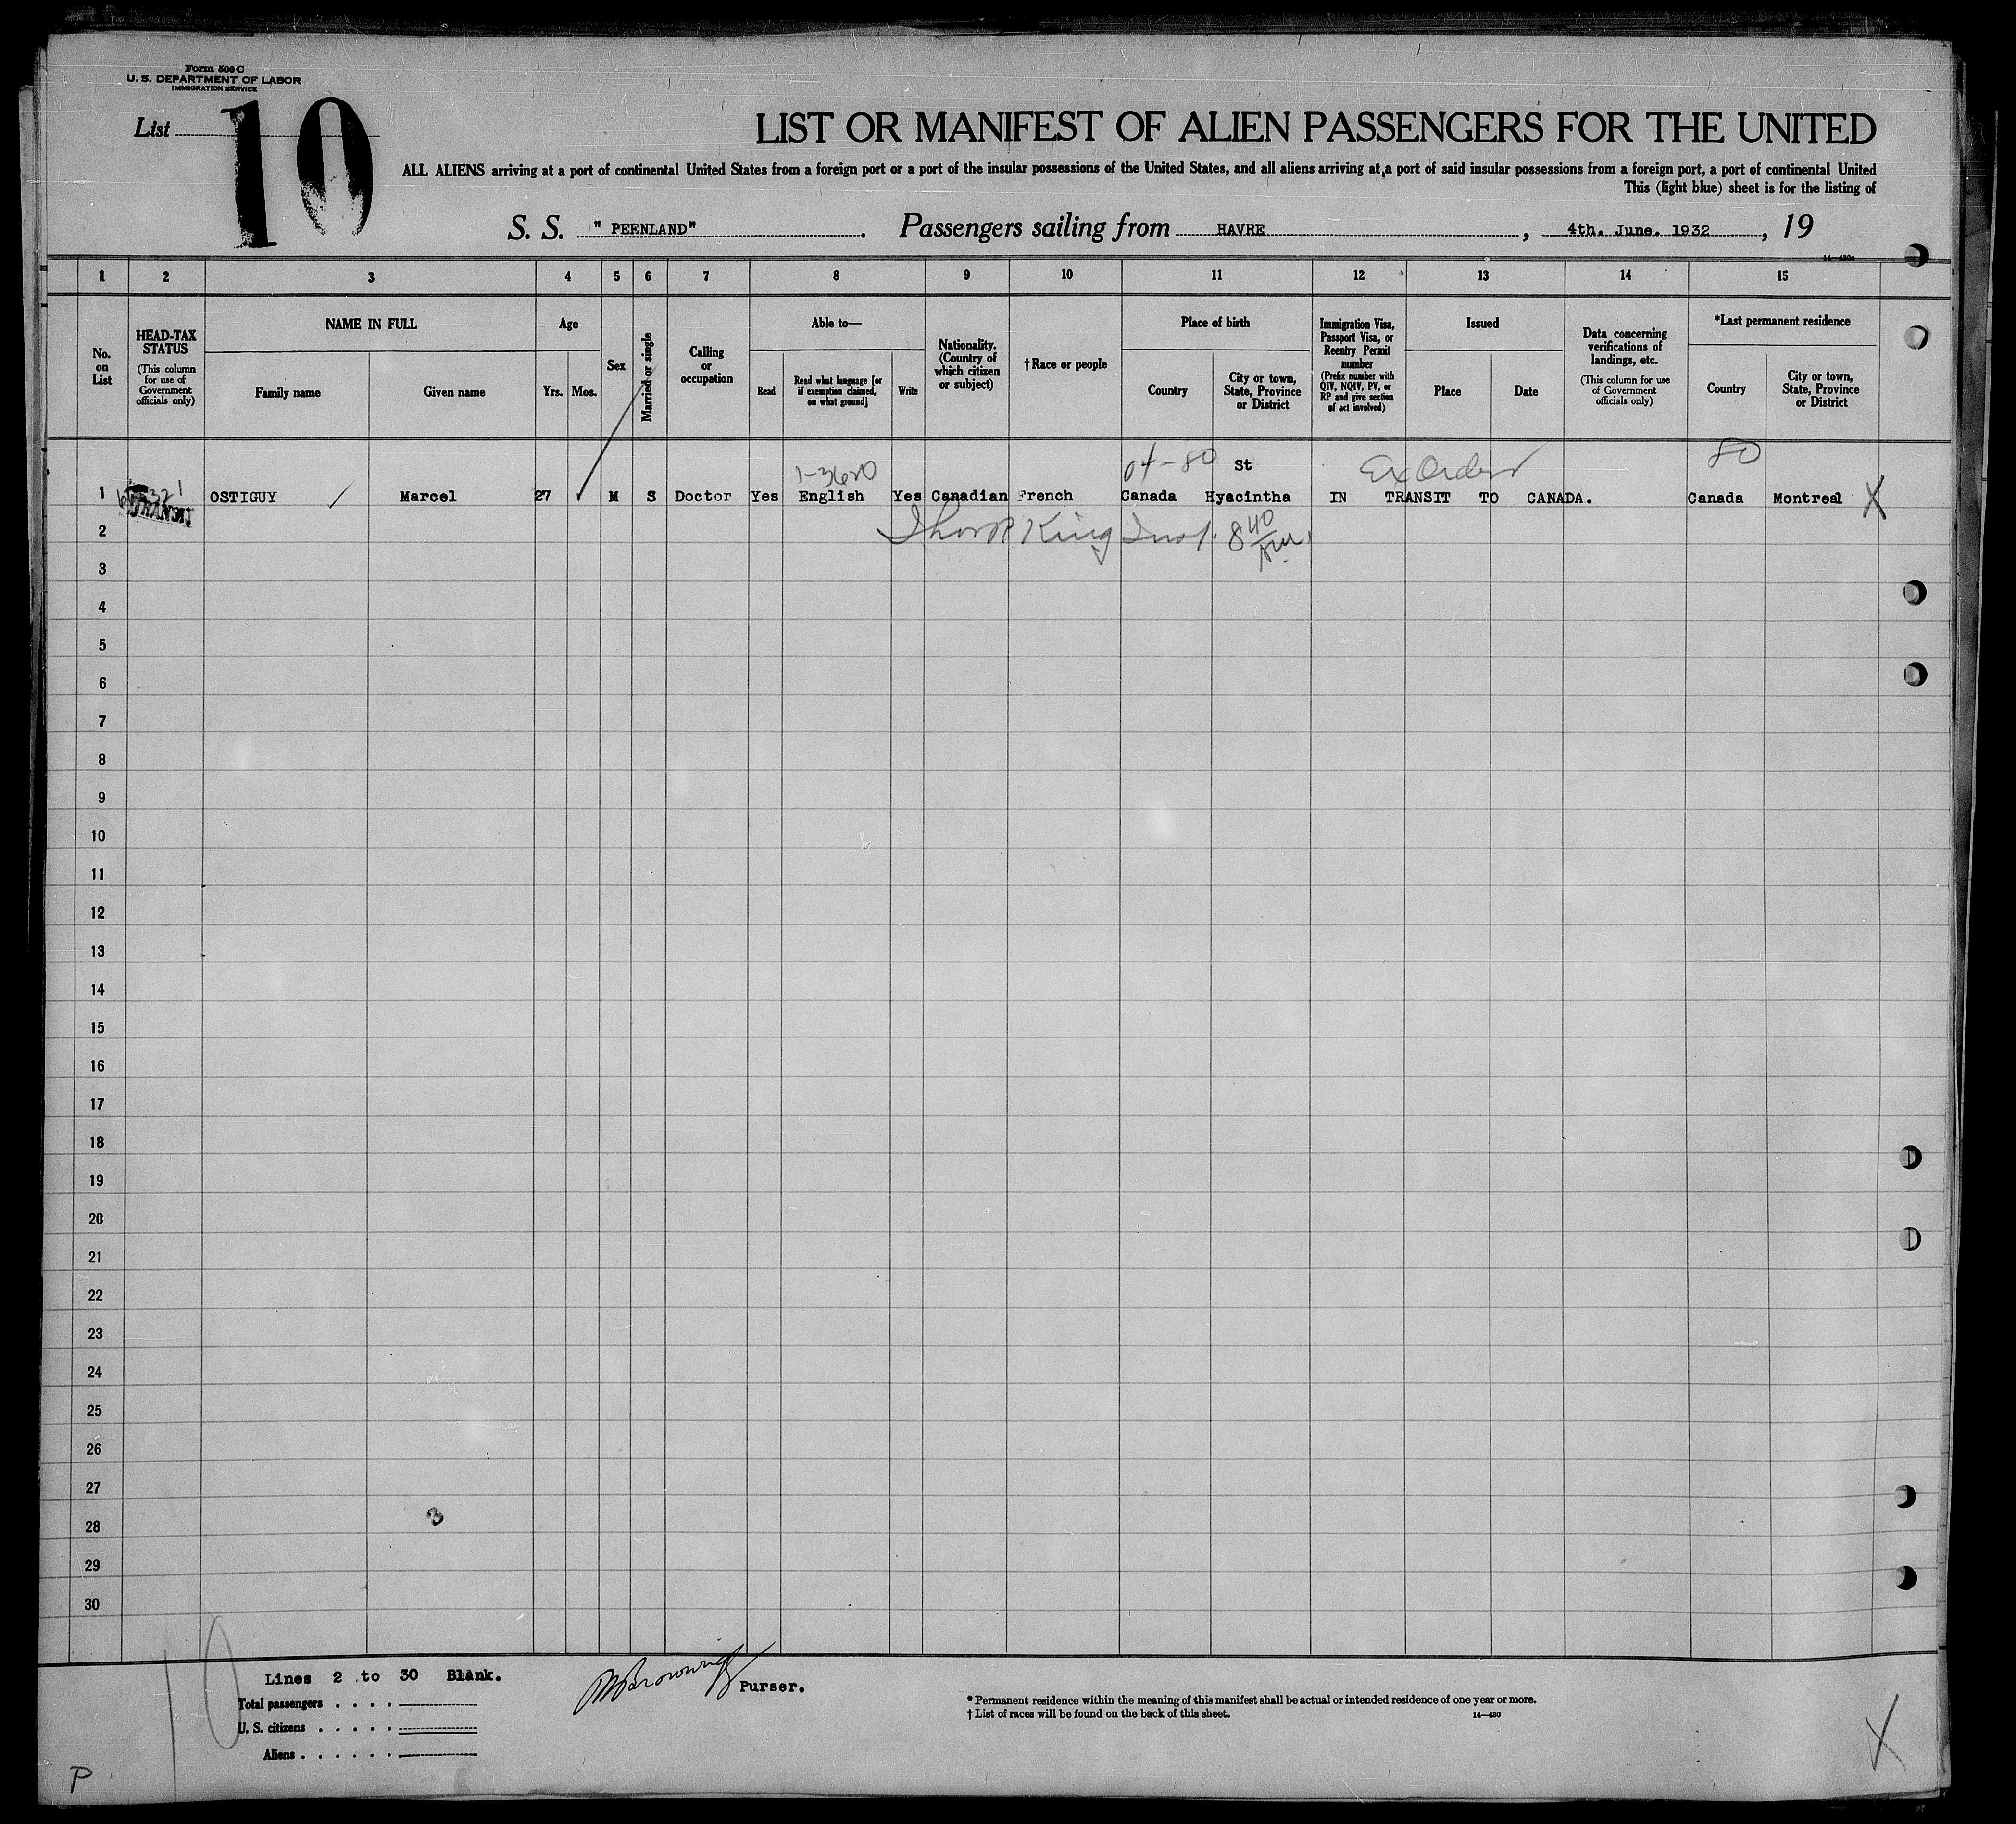 Form 500 C
U. S. DEPARTMENT OF LABOR
IMMIGRATION SERVICE
List 10
LIST OR MANIFEST OF ALIEN PASSENGERS FOR THE UNITED
ALL ALIENS arriving at a port of continental United States from a foreign port or a port of the insular possessions of the United States, and all aliens arriving at a port of said insular possessions from a foreign port, a port of continental United
This (light blue) sheet is for the listing of
S. S. " PEENLAND" . Passengers sailing from HAVRE , 4th. June. 1932 , 19
14-430a
1 2 3 4 5 6 7 8 9 10 11 12 13 14 15
No. on List
HEAD-TAX STATUS
(This column for use of Government officials only)
NAME IN FULL
Family name
Given name
Age
Yrs.
Mos.
Sex
Married or single
Calling or occupation
Able to—
Read
Read what language [or if exemption claimed, on what ground]
Write
Nationality. (Country of which citizen or subject)
†Race or people
Place of birth
Country
City or town, State, Province or District
Immigration Visa, Passport Visa, or Reentry Permit number
(Prefix number with QIV, NQIV, PV, or RP and give section of act involved)
Issued
Place
Date
Data concerning verifications of landings, etc.
(This column for use of Government officials only)
*Last permanent residence
Country
City or town, State, Province or District
1-3620 04-80 St Ex Order 80
1 TRANSIT OSTIGUY / Marcel 27 M S Doctor Yes English Yes Canadian French Canada Hyacintha IN TRANSIT TO CANADA. Canada Montreal X
2 King Insp. 8 40
3
4
5
6
7
8
9
10
11
12
13
14
15
16
17
18
19
20
21
22
23
24
25
26
27
3
28
29
30
10
Lines 2 to 30 Blank.
Total passengers . . . .
U. S. citizens . . . . .
Aliens . . . . . .
Purser.
* Permanent residence within the meaning of this manifest shall be actual or intended residence of one year or more.
† List of races will be found on the back of this sheet.
14-430
P
X